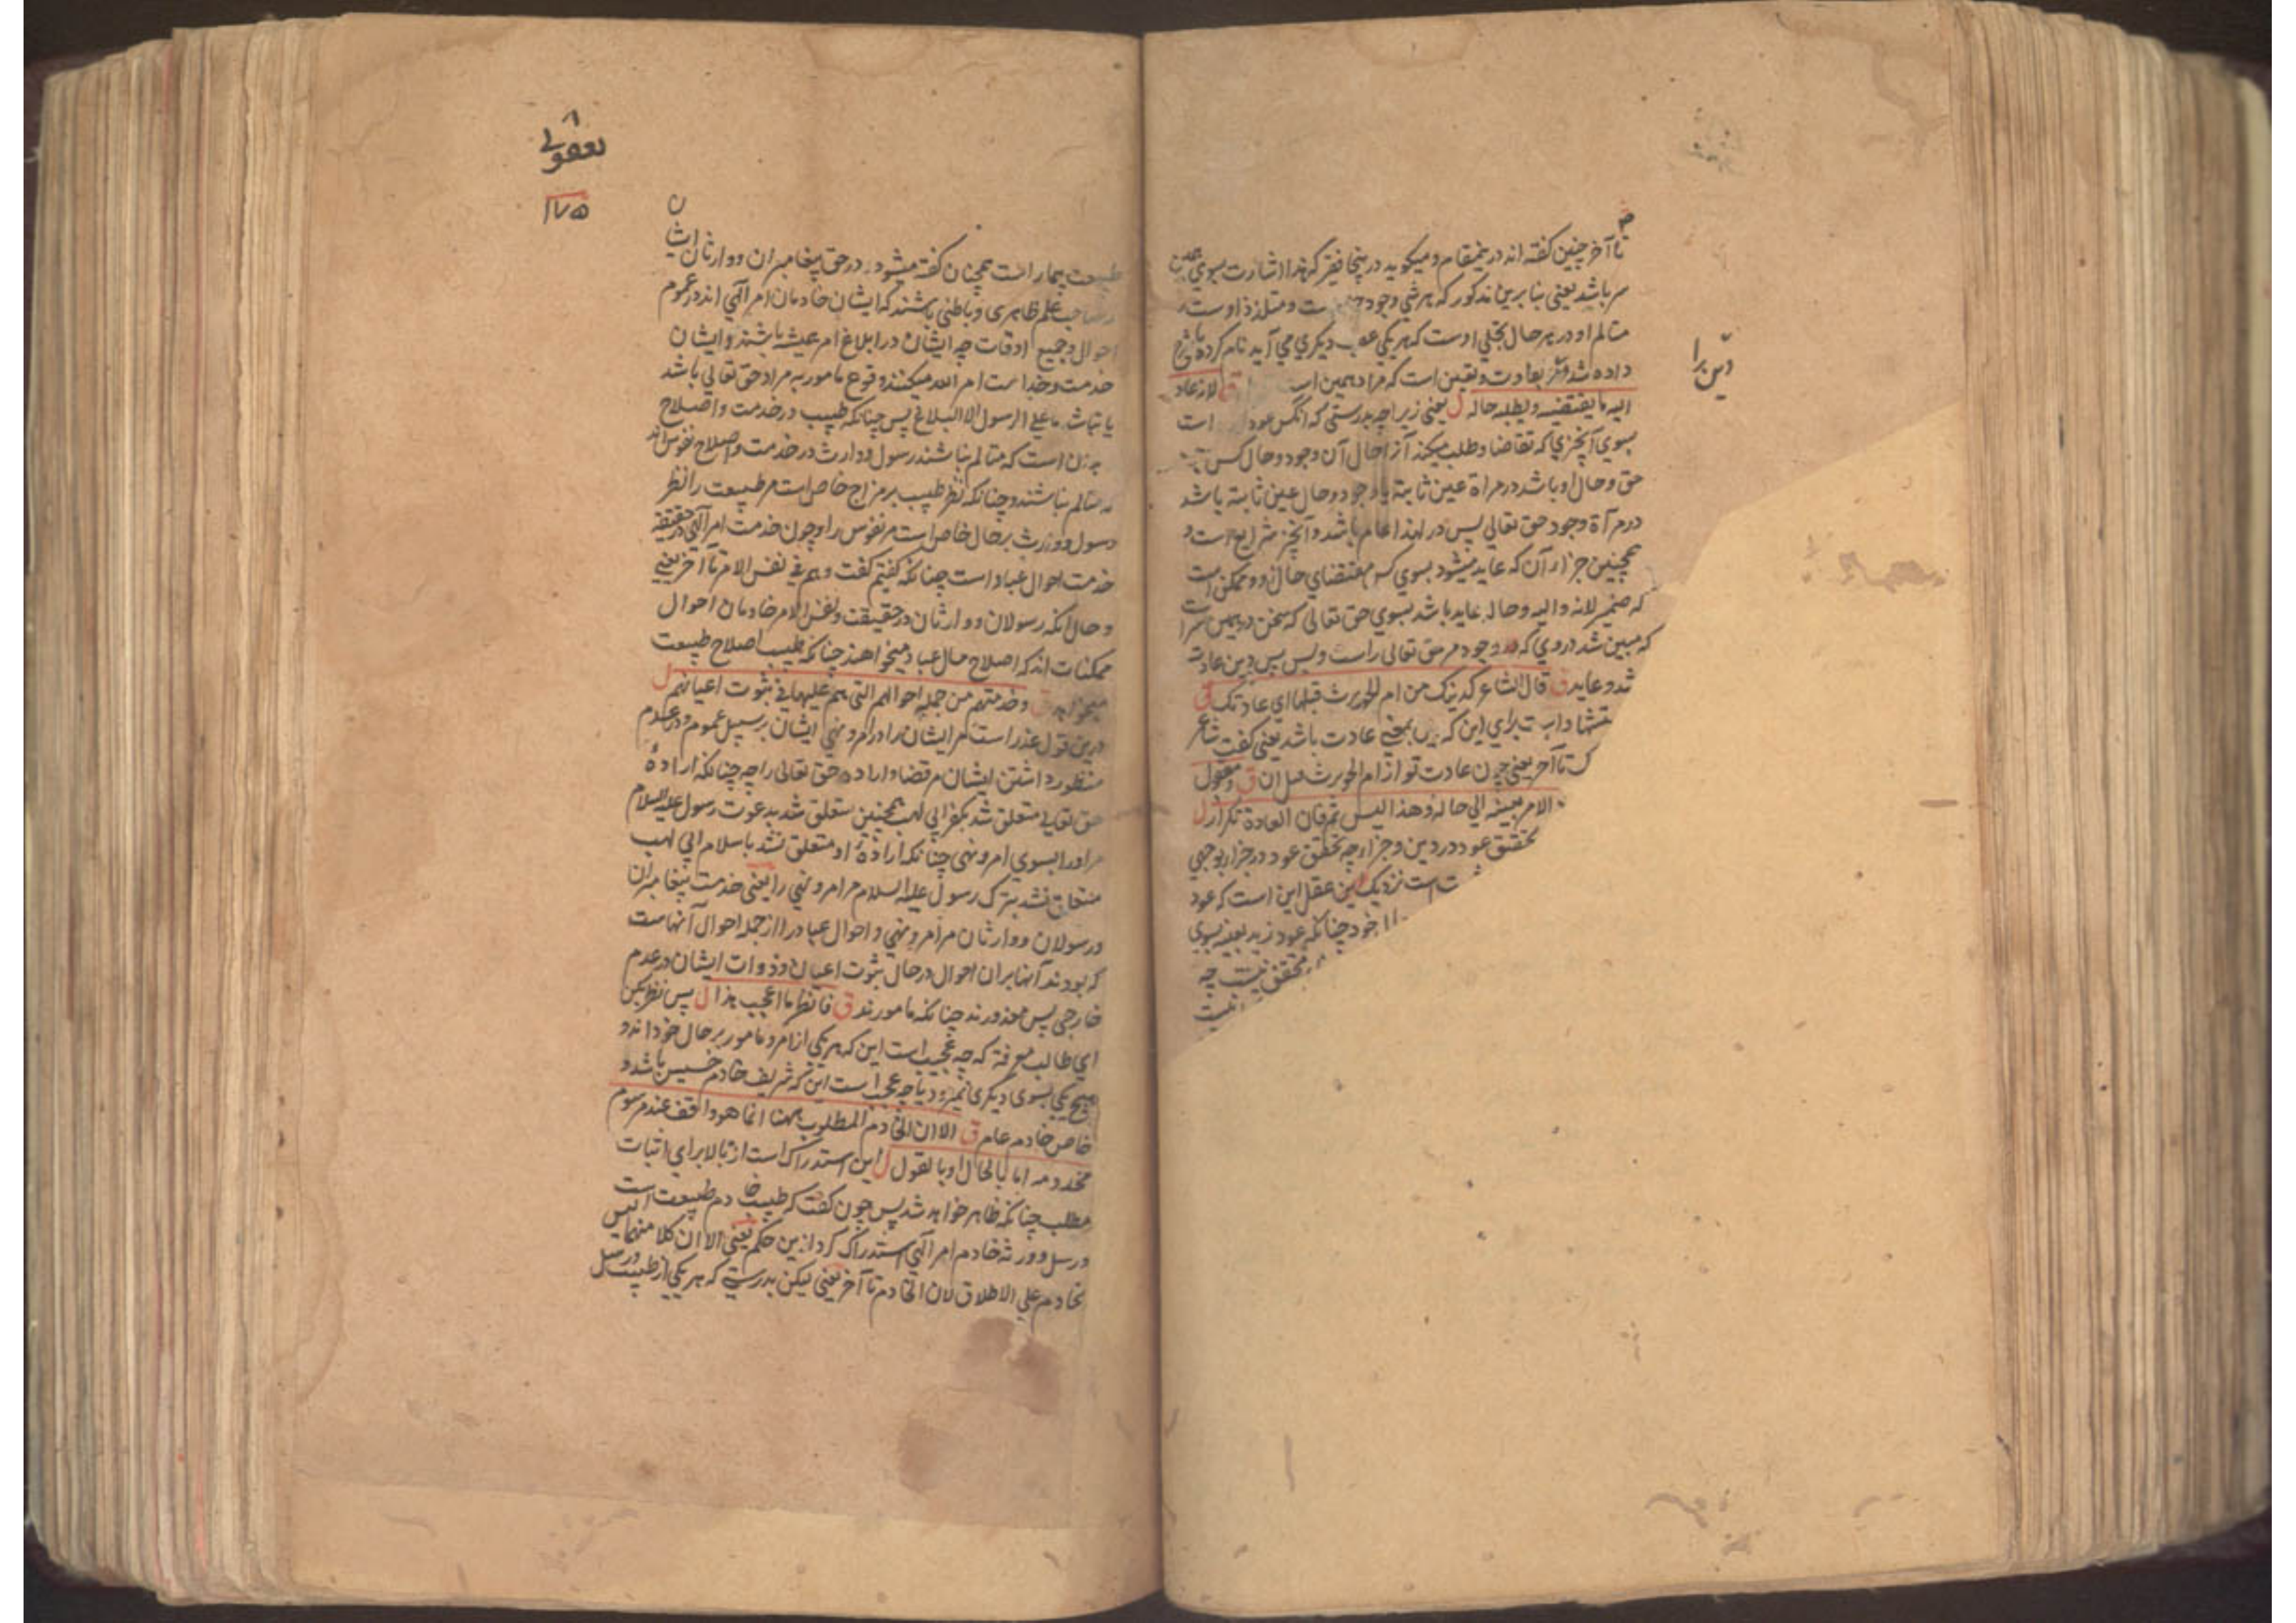 تا آخر چنین گفته اند درینمقام و میگوید درینجا فقیر که هذا اشارت بسوی
سر باشد یعنی بنا برین مذکور که هر شی وجود ست و متلذذ اوست
متالم او در هر حال تجلی اوست که هر یکی عقب دیگری می آید نام کرده
داده شد و یقین است که مراد همین ق لانه عاد
دین را
الیه ما یقتضیه و یطلبه حاله ل یعنی زیرا چه بدرستی که عود است
بسوی آنچیزی که تقاضا و طلب میکند آنرا حال آن وجود و حال کس
حق و حال او باشد در مرآة عین ثابته یا وجود و حال عین ثابته باشد
در مرآة وجود حق تعالی پس در لهذا عام باشد و آنچیز شرایع است و
همچنین جزا آن که عاید میشود بسوی مقتضای حال او و ممکن است
که ضمیر لانه و الیه و حاله عاید باشد بسوی حق تعالی که سخن در همین سر است
که مبین شد در وی که وجود مر حق تعالی راست و بس پس دین عادت
شد و عاید ق قال الشاعر کدینک من ام الحویرث قبلها ای عادتک ق
برای این که دین بمعنی عادت باشد یعنی گفت شاعر
ک تا آخر یعنی چون عادت تو از ام الحویرث قبل ان ق و معقول
الامر بعینه الی حاله و هذا لیس ثم فان العادة تکرار ل
تحقق عود در دین و جزا چه تحقق عود در جزا بوجهی
است نزدیک عقل این است که عود
خود چنانکه عود زید بعینه بسوی
محقق نیست چه
یعقوبی
۱۷۵
طبیعت بیمار است همچنان گفته میشود در حق پیغامبران و وارثان ایشان
صاحب علم ظاهری و باطنی باشند که ایشان خادمان امر الهی اند در عموم
احوال و جمیع اوقات چه ایشان در ابلاغ امر باشند و ایشان
خدمت امر الله میکنند وقوع مامور به مراد حق تعالی باشد
یا نباشد ما علی الرسول الا البلاغ پس چنانکه طبیب در خدمت و اصلاح
بدن است که متالم نباشند رسول و وارث در خدمت و اصلاح نفوس اند
که متالم نباشند و چنانکه نظر طبیب بر مزاج خاص است مر طبیعت را نظر
رسول و وارث بر حال خاص است مر نفوس را و چون خدمت امر الهی در حقیقة
خدمت احوال عباد است چنانکه گفتیم گفت و هم فی نفس الامر تا آخر یعنی
و حال آنکه رسولان و وارثان در حقیقت و نفس الامر خادمان احوال
ممکنات اند که اصلاح حال عباد میخواهند چنانکه طبیب اصلاح طبیعت
میخواهد ق و خدمتهم من جملة احوالهم التی هم علیها فی ثبوت اعیانهم ل
درین قول عذر است مر ایشان را در امر و نهی ایشان بر سبیل عموم و در عدم
منظور داشتن ایشان مر قضا و اراده حق تعالی را چه چنانکه ارادهٔ
حق تعالی متعلق شد بکفر ابی لهب همچنین متعلق شد بدعوت رسول علیه السلام
مر او را بسوی امر و نهی چنانکه ارادهٔ او متعلق نشد باسلام ابی لهب
متعلق نشد بترک رسول علیه السلام مر امر و نهی را یعنی خدمت پیغامبران
و رسولان و وارثان مر امر و نهی و احوال عباد را از جمله احوال آنهاست
که بودند آنها بران احوال در حال ثبوت اعیان و ذوات ایشان در عدم
خارجی پس معذورند چنانکه مامورند ق فانظر ما اعجب هذا ل پس نظر بکن
ای طالب معرفة که چه عجیب است این که هر یکی از امر و مامور بر حال خود اند و
هیچ یکی بسوی دیگری نمیرود یا چه عجب است این که شریف خادم خسیس باشد و
خاص خادم عام ق الا ان الخادم المطلوب ههنا انما هو واقف عند مرسوم
مخدومه اما بالحال او بالقول ل این استدراک است از بالا برای اثبات
مطلب چنانکه ظاهر خواهد شد پس چون گفت که طبیب خادم طبیعت است
و رسل و ورثه خادم امر الهی استدراک کرد ازین حکم یعنی الا ان کلا منهما لیس
بخادم علی الاطلاق لان الخادم تا آخر یعنی لیکن بدرستی که هر یکی از طبیب و رسل